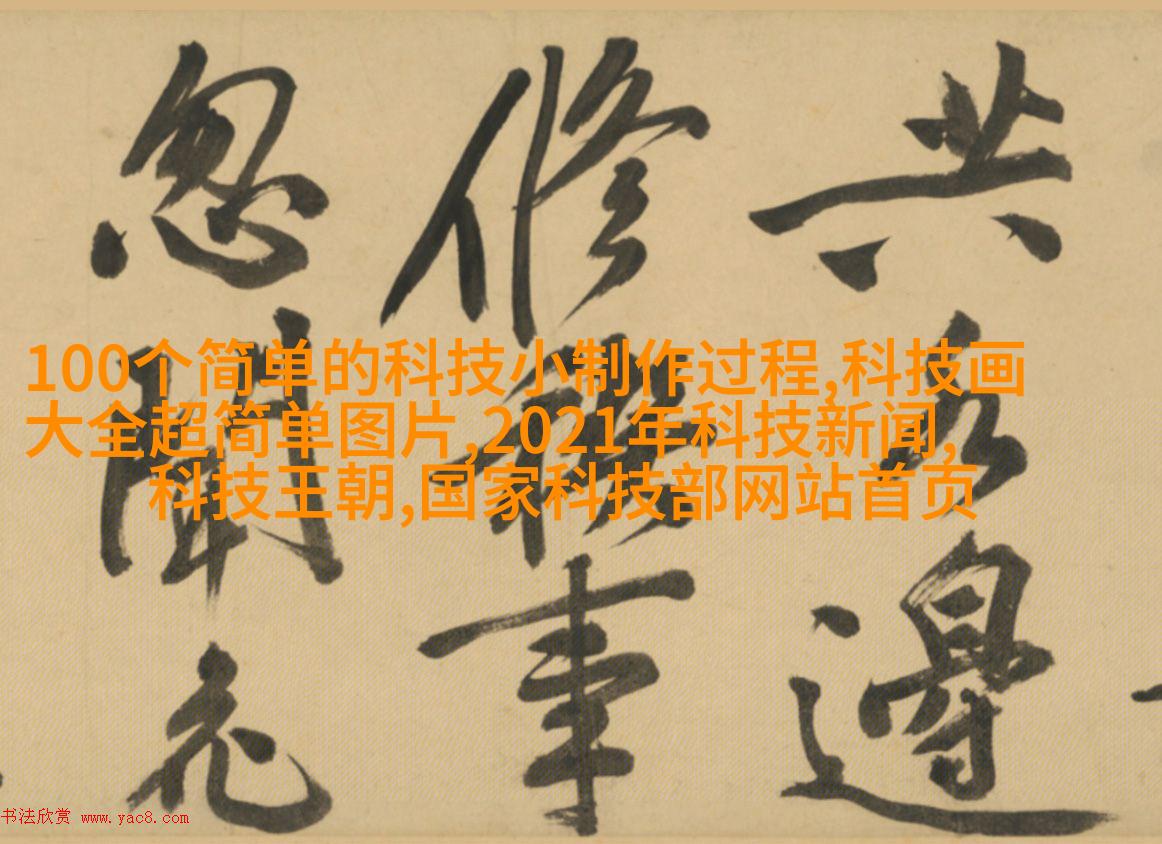 共
邊
修禊事
忽聞
100个简单的科技小制作过程,科技画
大全超简单图片,2021年科技新闻,
科技王朝,国家科技部网站首页
书法欣赏 www.yac8.com